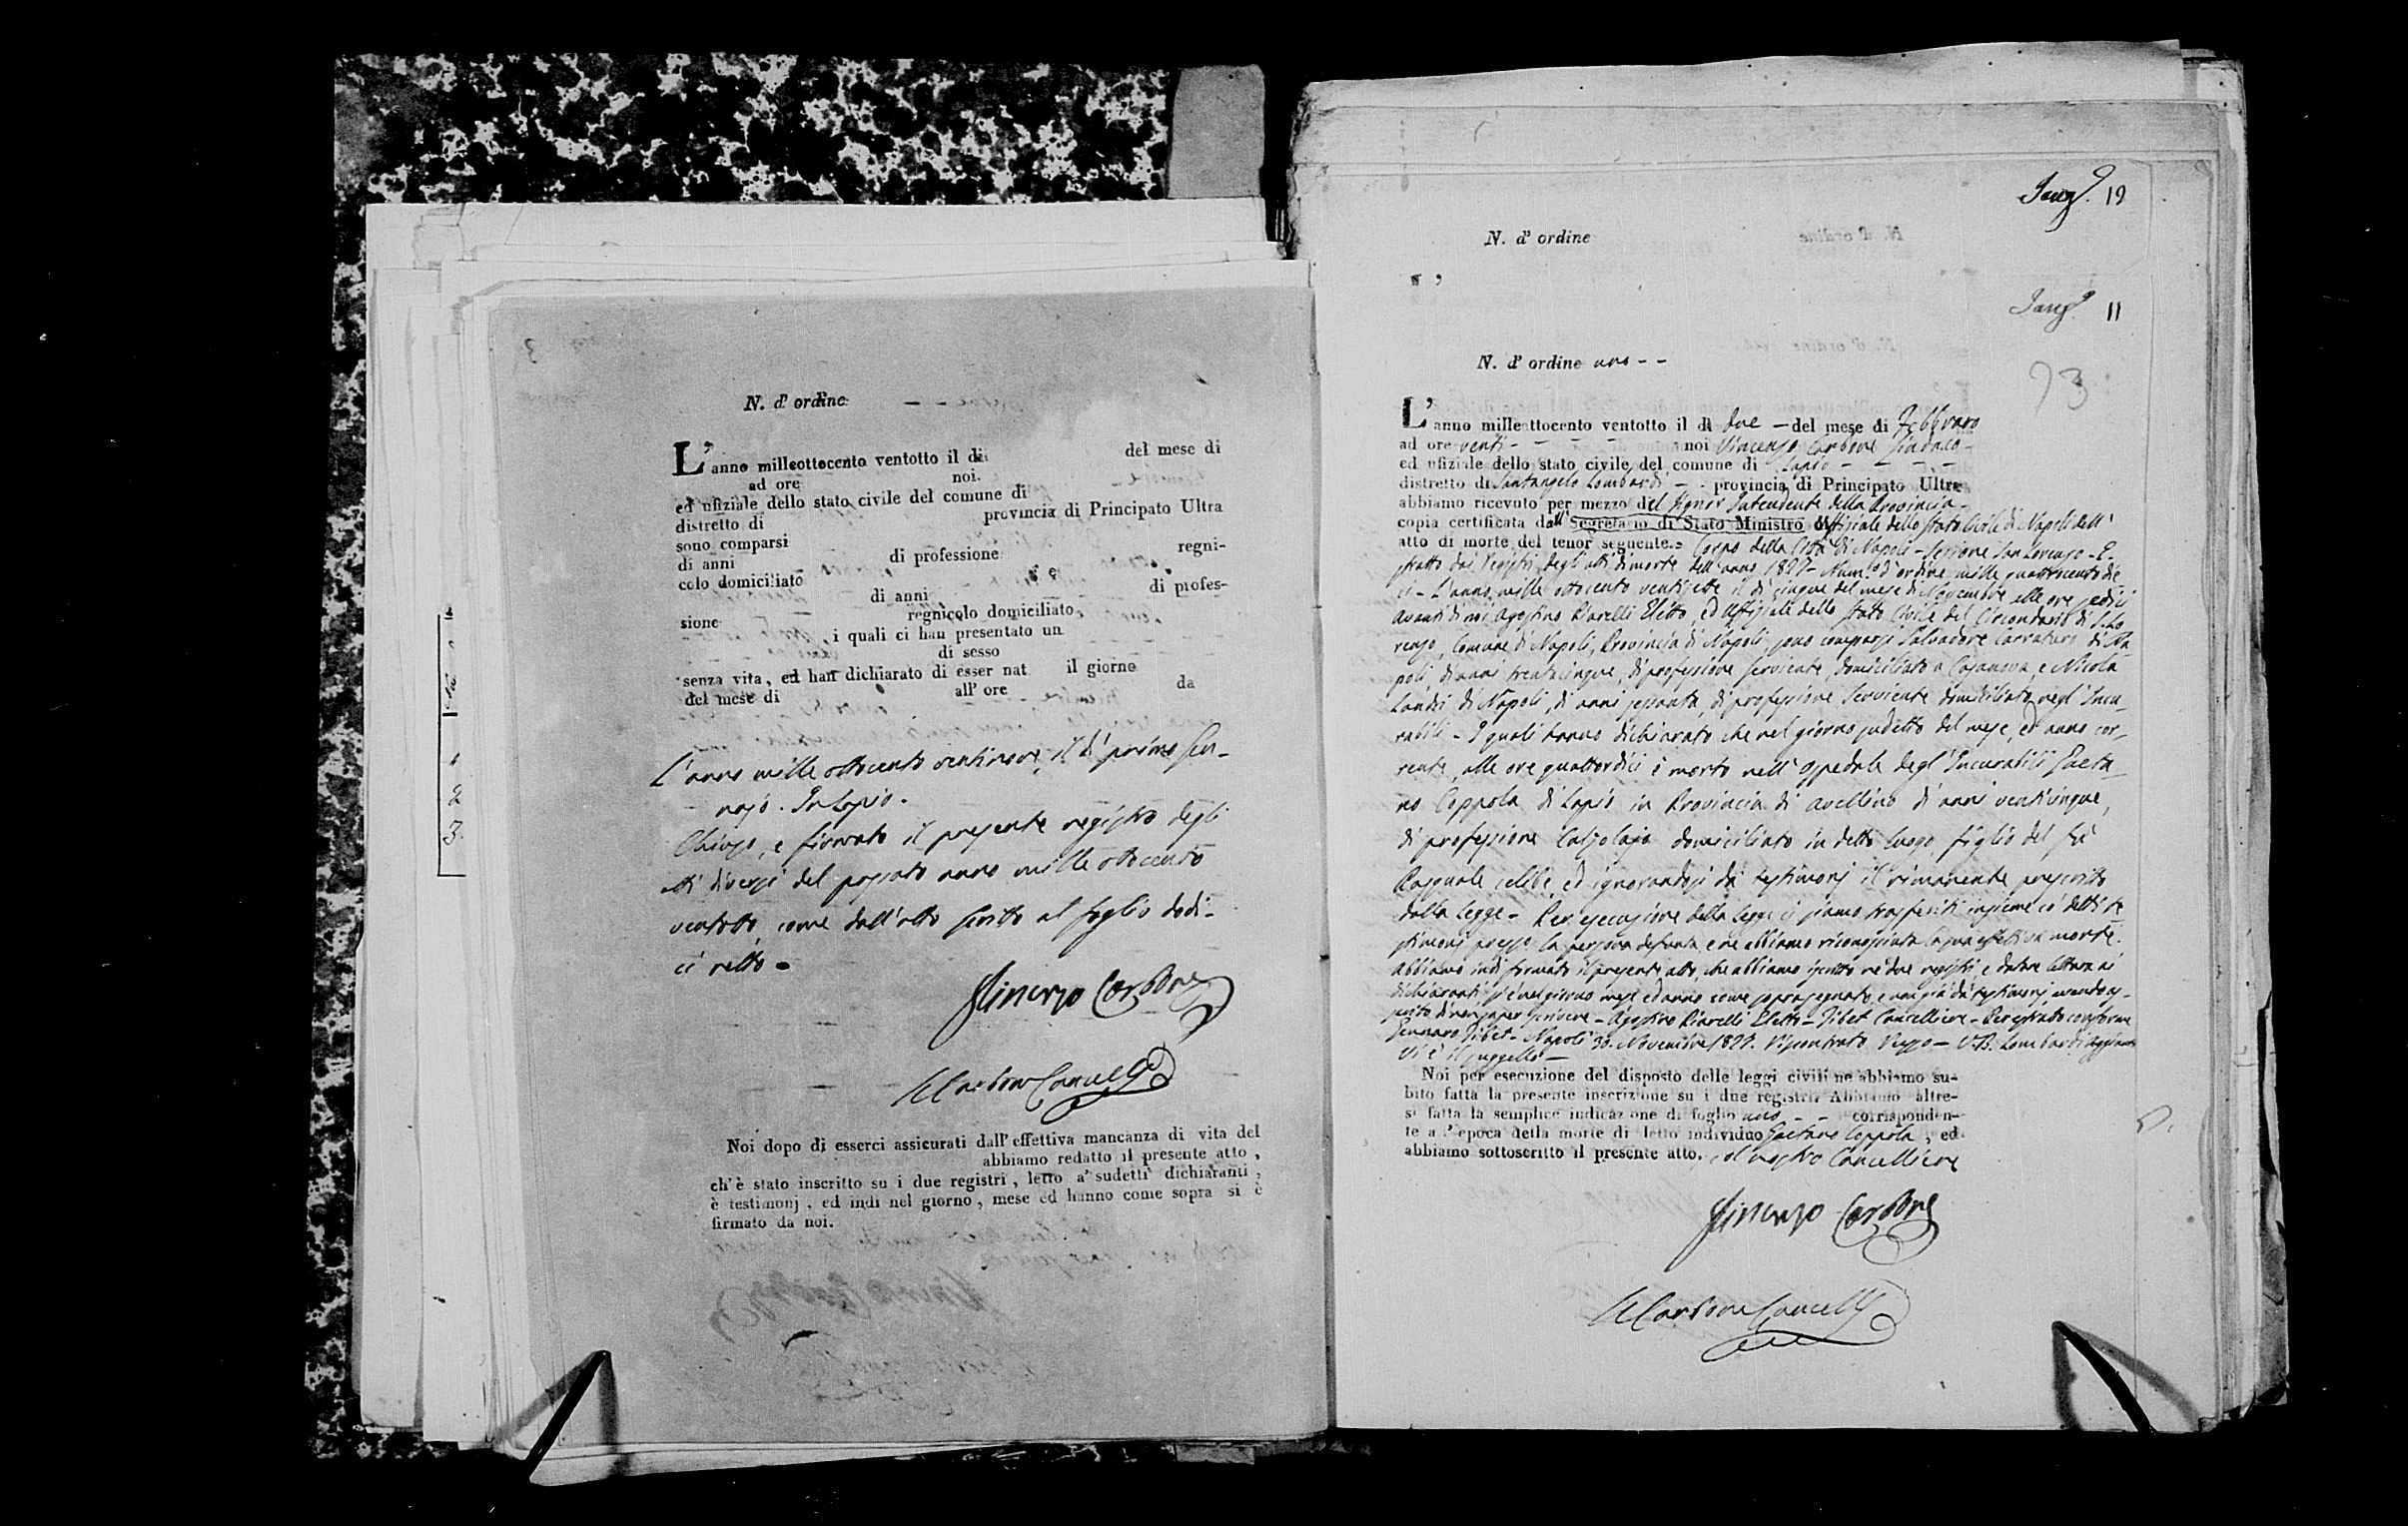 N. d' ordine
L' anno milleottocento ventotto il dì del mese di
ad ore noi.
ed ufiziale dello stato civile del comune di
distretto di provincia di Principato Ultra
sono comparsi
di anni di professione regni-
colo domiciliato e
di anni di profes-
sione regnicolo domiciliato
i quali ci han presentato un
di sesso
senza vita, ed han dichiarato di esser nat il giorno
del mese di all' ore da
L'anno mille ottocento ventinove, il dì primo Gen-
najo. In Lapio.
Chiuso, e firmato il presente registro degli
atti diversi del passato anno mille ottocento
ventotto, come dall'atto scritto al foglio dodi-
ci retto.
Vincenzo Carbone
Carbone Cancell.e
Noi dopo di esserci assicurati dall' effettiva mancanza di vita del
abbiamo redatto il presente atto,
ch'è stato inscritto su i due registri, letto a' sudetti dichiaranti,
è testimonj, ed indi nel giorno, mese ed hanno come sopra si è
firmato da noi.
12
N. d' ordine
11
N. d' ordine uno - -
73
L' anno milleottocento ventotto il dì due - del mese di Febbraro
ad ore venti - - - - noi Vincenzo Carbone Sindaco -
ed ufiziale dello stato civile del comune di Lapio - - - -
distretto di Santangelo Lombardi - - provincia di Principato Ultra
abbiamo ricevuto per mezzo del Signor Intendente della Provincia -
copia certificata dall' Segretario di Stato Ministro Uffiziale dello Stato Civile di Napoli dell'
atto di morte del tenor seguente. Corpo della Città di Napoli - Sezione San Lorenzo - E-
stratto dai Registri degli atti di morte dell'anno 1827 - Num.o d'ordine mille quattrocento die
ci - L'anno mille ottocento ventisette il dì cinque del mese di Novembre alle ore sedici
avanti di noi Agostino Piarelli Eletto, ed Uffiziale dello Stato Civile del Circondario di S. Lo
renzo, Comune di Napoli, Provincia di Napoli, sono comparsi Salvadore Carraturo di Na
poli, di anni trentacinque, di professione serviente, domiciliato a Casanova, e Nicola
Landri di Napoli, di anni sessanta, di professione Serviente domiciliato negl' Incu-
rabili - I quali hanno dichiarato che nel giorno sudetto del mese, ed anno cor-
rente, alle ore quattordici è morto nell'Ospedale degl'Incurabili Gaeta-
no Coppola di Lapio in Provincia di Avellino di anni venticinque,
di professione Calzolajo domiciliato in detto luogo, figlio del fù
Pasquale celibe, ed ignorandosi da' testimonj il rimanente prescritto
dalla Legge - Per esecuzione della Legge ci siamo trasferiti insieme co' detti te
stimonj presso la persona defunta, e ne abbiamo riconosciuta la sua effettiva morte.
Abbiamo indi formato il presente atto, che abbiamo iscritto ne' due registri, e datane lettura ai
dichiaranti, si è nel giorno mese ed anno come sopra segnato, e non già da' testimonj avendo as-
serito di non saper scrivere - Agostino Piarelli Eletto - Tibet Cancelliere - Per estratto conforme
Gennaro Tibet - Napoli 30 Novembre 1827. Riscontrato - V.B. Lombardi
Vi è il suggello -
Noi per esecuzione del disposto delle leggi civili ne abbiamo su-
bito fatta la presente inscrizione su i due registri. Abbiamo altre-
sì fatta la semplice indicazione di foglio uno - - corrisponden-
te all'epoca della morte di detto individuo Gaetano Coppola, ed
abbiamo sottoscritto il presente atto. col nostro Cancelliere
Vincenzo Carbone
Carbone Cancell.e